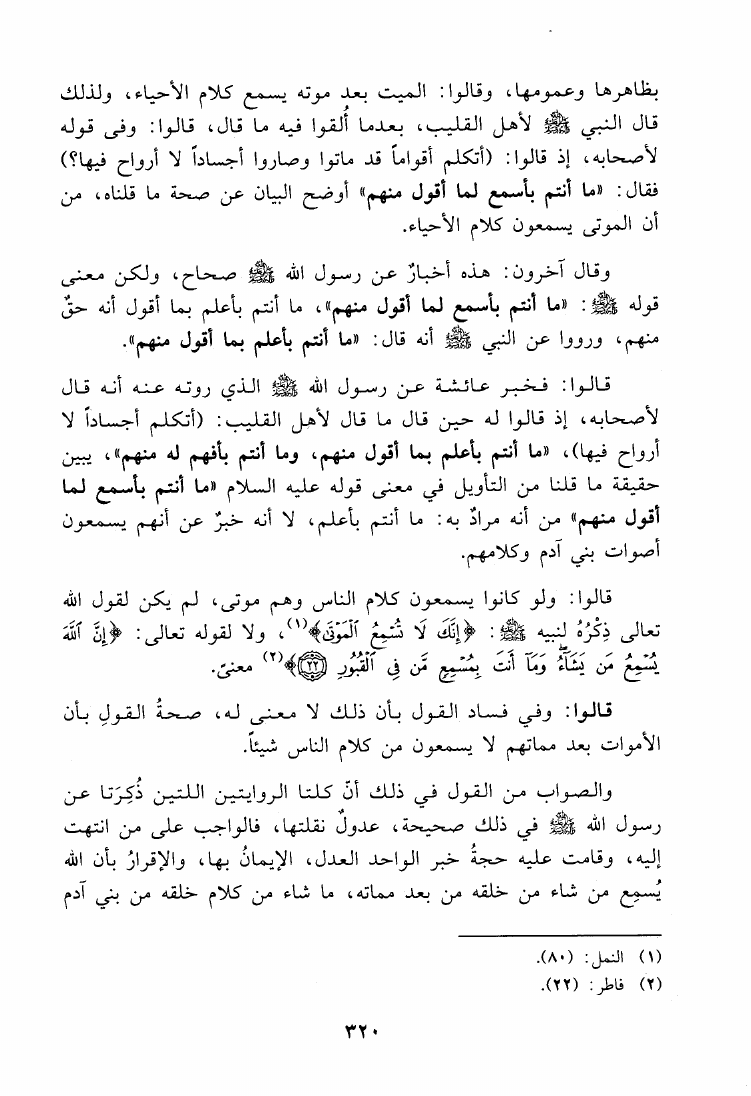 بظاهرها وعمومها، وقالوا: الميت بعد موته يسمع كلام الأحياء، ولذلك
قال النبي ﷺ لأهل القليب، بعدما أُلقوا فيه ما قال، قالوا: وفى قوله
لأصحابه، إذ قالوا: (أتكلم أقواماً قد ماتوا وصاروا أجساداً لا أرواح فيها؟)
فقال: «ما أنتم بأسمع لما أقول منهم» أوضح البيان عن صحة ما قلناه، من
أن الموتى يسمعون كلام الأحياء.
وقال آخرون: هذه أخبارٌ عن رسول الله ﷺ صحاح، ولكن معنى
قوله ﷺ: «ما أنتم بأسمع لما أقول منهم»، ما أنتم بأعلم بما أقول أنه حقٌ
منهم، ورووا عن النبي ﷺ أنه قال: «ما أنتم بأعلم بما أقول منهم».
قالوا: فخبر عائشة عن رسول الله ﷺ الذي روته عنه أنه قال
لأصحابه، إذ قالوا له حين قال ما قال لأهل القليب: (أتكلم أجساداً لا
أرواح فيها)، «ما أنتم بأعلم بما أقول منهم، وما أنتم بأفهم له منهم»، يبين
حقيقة ما قلنا من التأويل في معنى قوله عليه السلام «ما أنتم بأسمع لما
أقول منهم» من أنه مرادٌ به: ما أنتم بأعلم، لا أنه خبرٌ عن أنهم يسمعون
أصوات بني آدم وكلامهم.
قالوا: ولو كانوا يسمعون كلام الناس وهم موتى، لم يكن لقول الله
تعالى ذِكْرُهُ لنبيه ﷺ: ﴿إِنَّكَ لَا تُسْمِعُ ٱلْمَوْتَىٰ﴾(١)، ولا لقوله تعالى: ﴿إِنَّ ٱللَّهَ
يُسْمِعُ مَن يَشَآءُ ۖ وَمَآ أَنتَ بِمُسْمِعٍ مَّن فِى ٱلْقُبُورِ ٢٢﴾(٢) معنىً.
قالوا: وفي فساد القول بأن ذلك لا معنى له، صحةُ القولِ بأن
الأموات بعد مماتهم لا يسمعون من كلام الناس شيئاً.
والصواب من القول في ذلك أنّ كلتا الروايتين اللتين ذُكِرَتا عن
رسول الله ﷺ في ذلك صحيحة، عدولٌ نقلتها، فالواجب على من انتهت
إليه، وقامت عليه حجةُ خبر الواحد العدل، الإيمانُ بها، والإقرارُ بأن الله
يُسمِع من شاء من خلقه من بعد مماته، ما شاء من كلام خلقه من بني آدم
(١) النمل: (٨٠).
(٢) فاطر: (٢٢).
٣٢٠